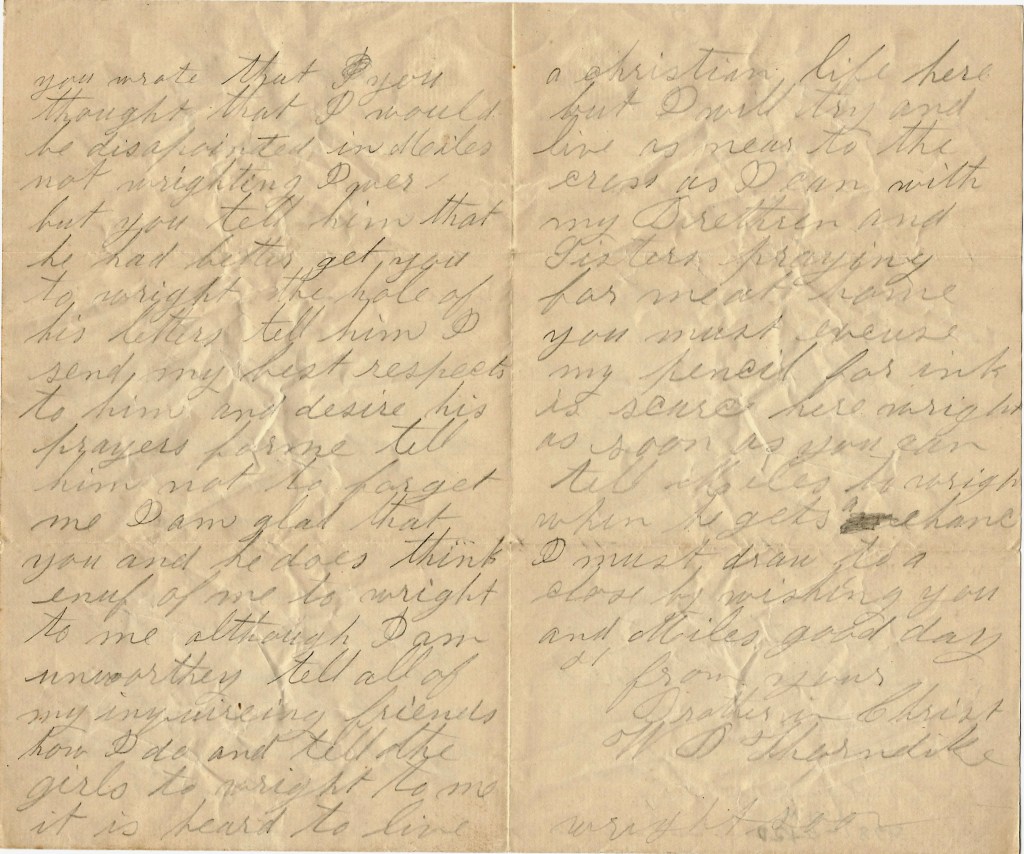 you wrote that I you
thought that I would
be disapointed in Miles
not wrighting I wer
but you tell him that
he had better get you
to wright the hole of
his letters tell him I
send my best respects
to him and desire his
prayers forme tell
him not to forget
me I am glad that
you and he does think
enuf of me to wright
to me although I am
unworthey tell all of
my inquireing friends
how I do and tell the
girls to wright to me
it is heard to live
a christian life here
but I will try and
live as near to the
cross as I can with
my Brethren and
Sisters praying
for me at home
you must excuse
my pencil for ink
is scarce here wright
as soon as you can
tell Miles to wright
when he gets a chanc
I must draw to a
close by wishing you
and Miles good day
from your
Brother in Christ
W D Thorndike
wright soon